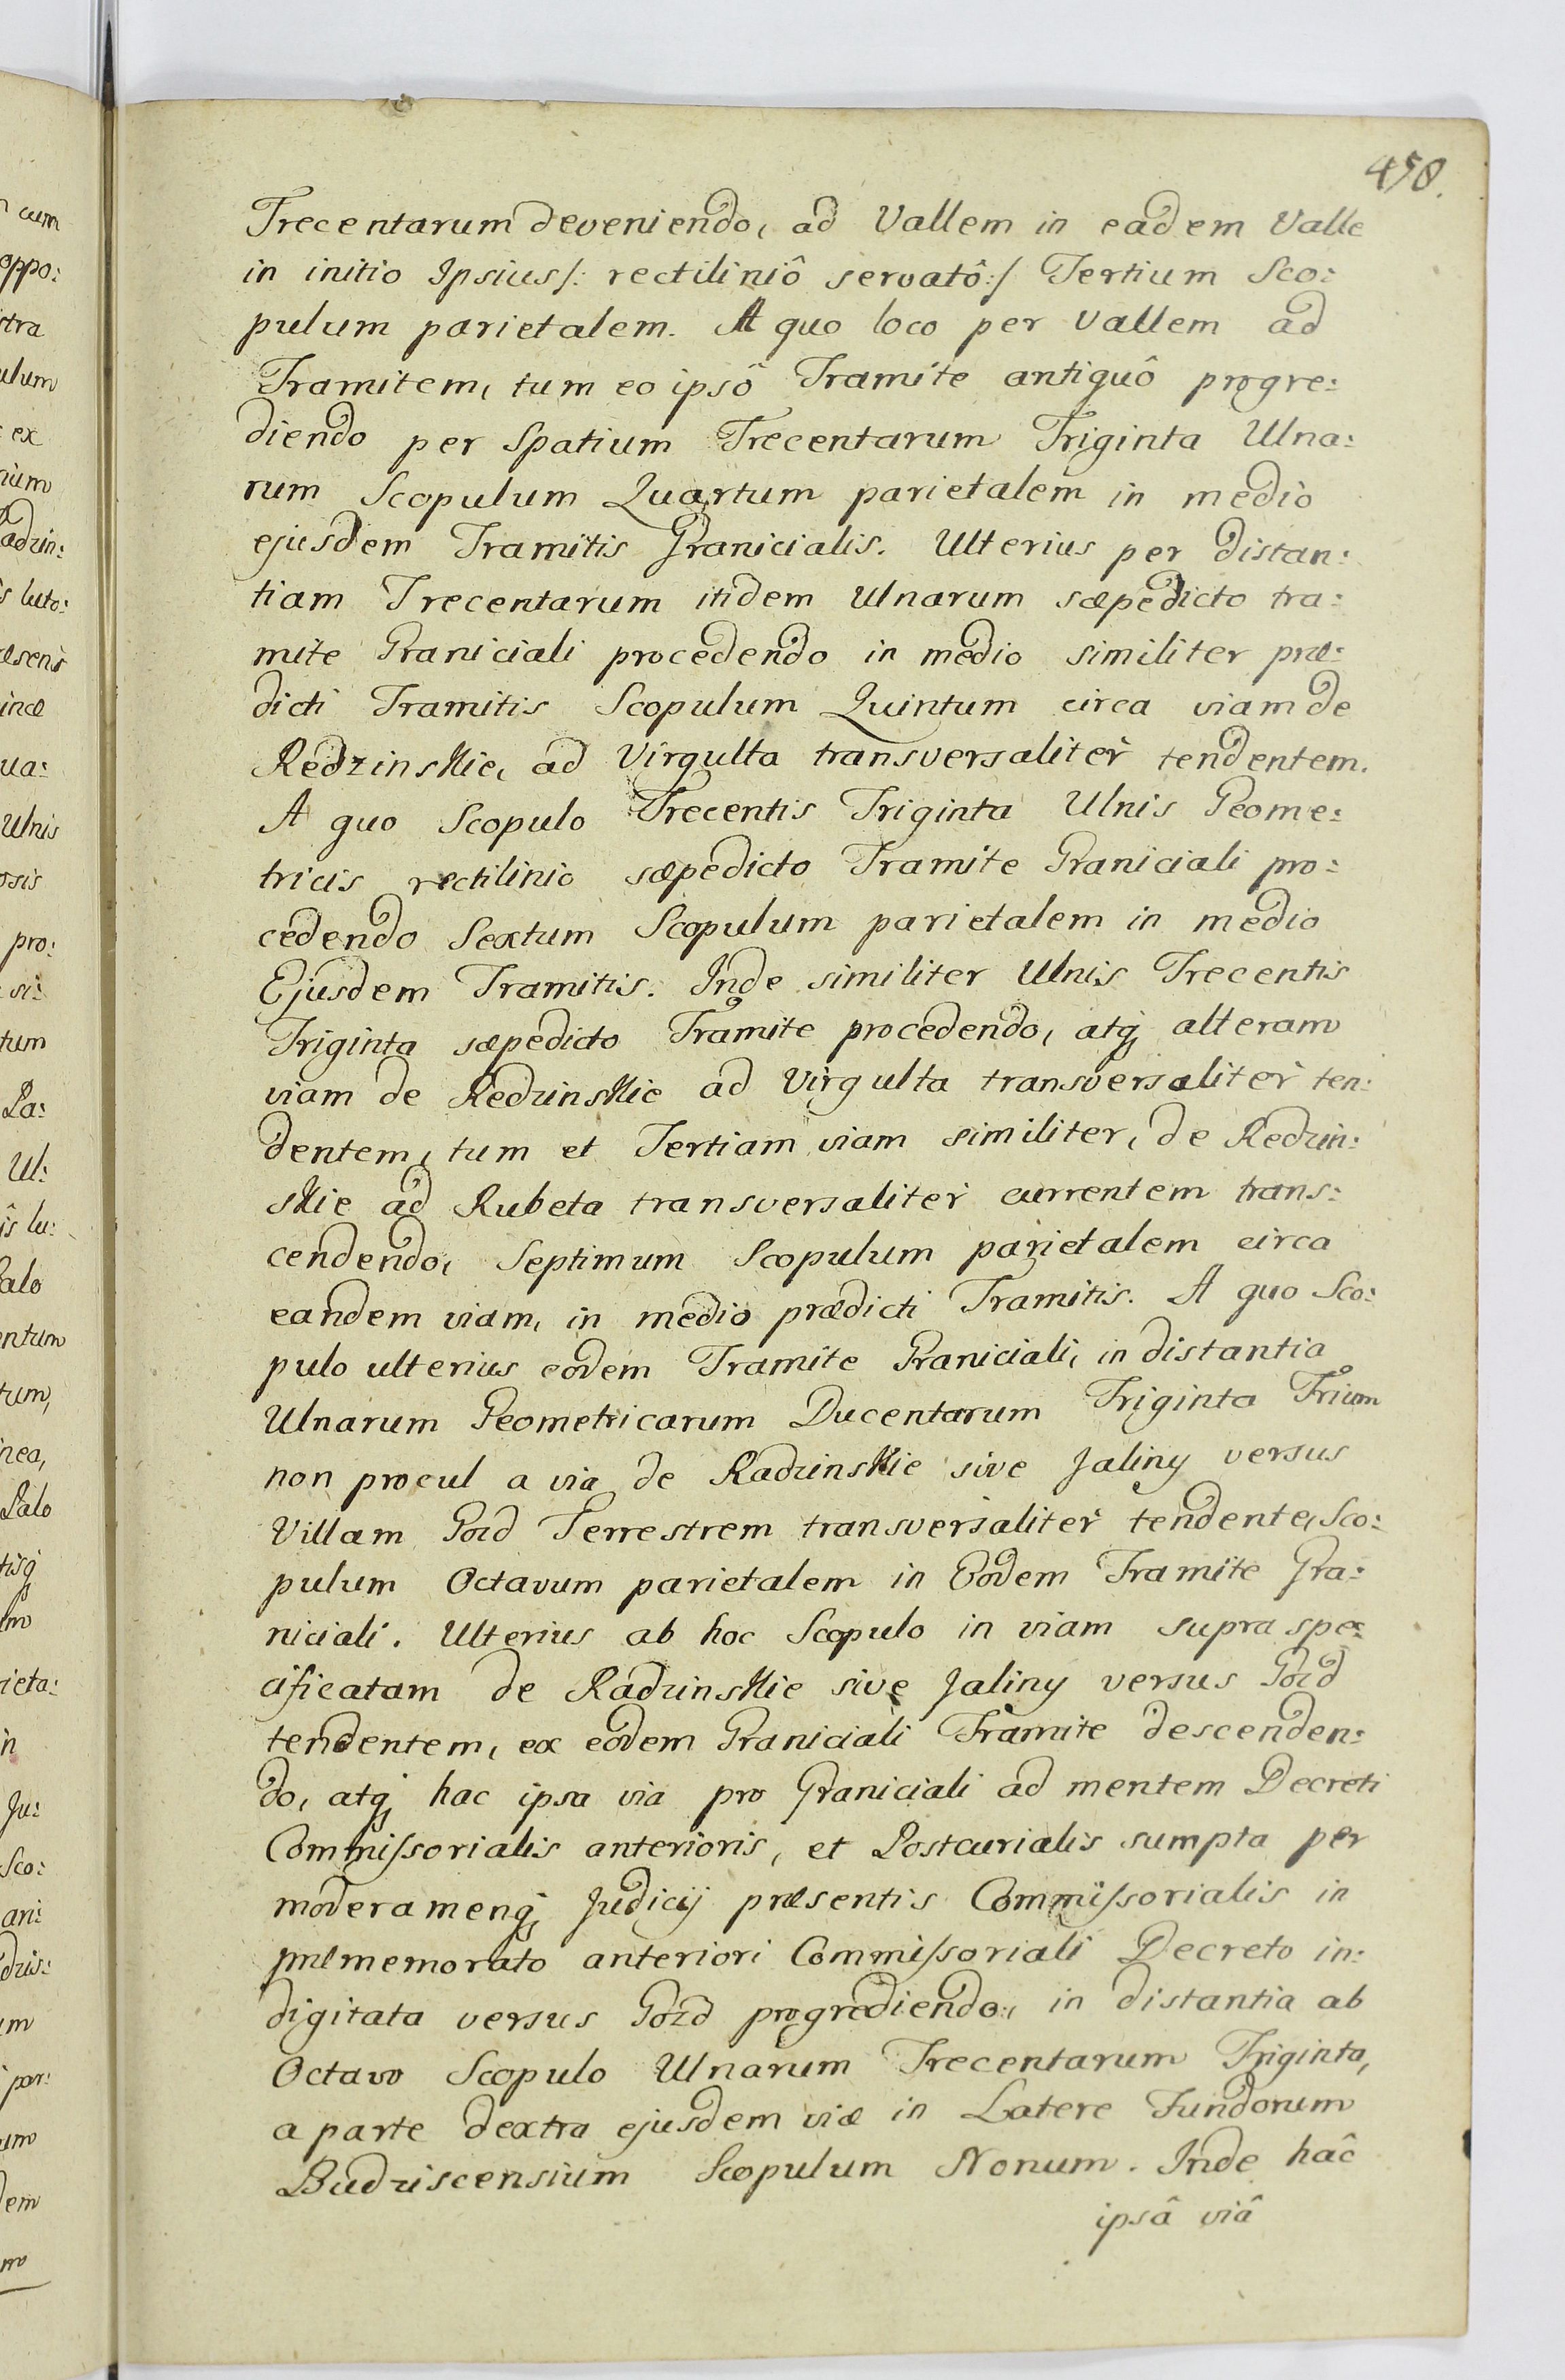 458.
Trecentarum deveniendo, ad Vallem in eadem Valle
in initio Ipsius /: rectiliniô servatô :/ Tertium Sco:
pulum parietalem. A quo loco per Vallem ad
Tramitem, tum eo ipsô Tramite antiquô progre:
diendo per Spatium Trecentarum Triginta Ulna:
rum Scopulum Quartum parietalem in medio
ejusdem Tramitis Granicialis. Ulterius per distan:
tiam Trecentarum itidem Ulnarum sæpedicto tra:
mite Graniciali procedendo in medio similiter præ:
dicti Tramitis Scopulum Quintum circa viam de
Redzinskie, ad Virgulta transversaliter tendentem.
A quo Scopulo Trecentis Triginta Ulnis Geome:
tricis rectilinio sæpedicto Tramite Graniciali pro:
cedendo Sextum Scopulum parietalem in medio
Ejusdem Tramitis. Inde similiter Ulnis Trecentis
Triginta sæpedicto Tramite procedendo, atq; alteram
viam de Redzinskie ad Virgulta transversaliter ten:
dentem, tum et Tertiam viam similiter, de Redzin:
skie ad Rubeta transversaliter currentem trans:
cendendo, Septimum Scopulum parietalem circa
eandem viam, in medio prædicti Tramitis. A quo Sco:
pulo ulterius eodem Tramite Graniciali, in distantia
Ulnarum Geometricarum Ducentarum Triginta Trium
non procul a via de Radzinskie sive Jaliny versus
Villam Gozd Terrestrem transversaliter tendente, Sco:
pulum Octavum parietalem in Eodem Tramite Gra:
niciali. Ulterius ab hoc Scopulo in viam supra spe:
cificatam de Radzinskie sive Jaliny versus Gozd
tendentem, ex eodem Graniciali Tramite descenden:
do, atq; hac ipsa via pro Graniciali ad mentem Decreti
Commissorialis anterioris, et Postcurialis sumpta per
moderamenq; Judicij præsentis Commissorialis in
præmemorato anteriori Commissoriali Decreto in:
digitata versus Gozd progrediendo, in distantia ab
Octavo Scopulo Ulnarum Trecentarum Triginta,
a parte dextra ejusdem viæ in Latere Fundorum
Budziscensium Scopulum Nonum. Inde hâc
ipsâ viâ